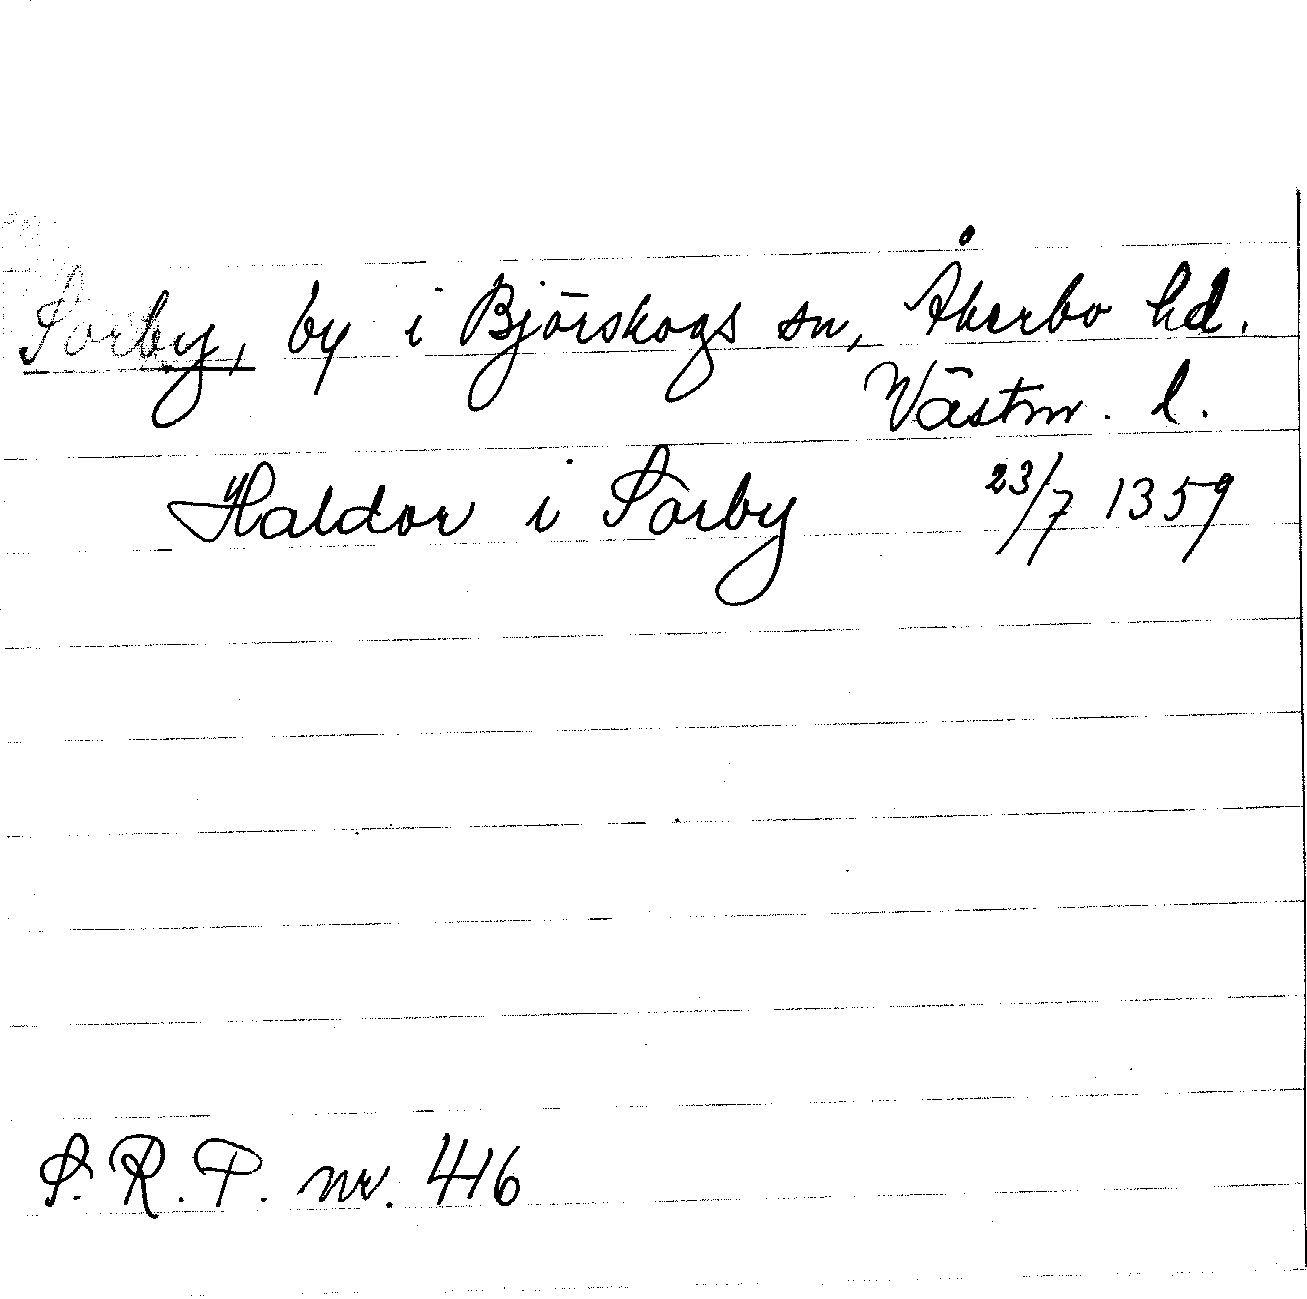 Sörby, by i Björskogs sn, Åkerbo hd.
Västm. l.
Haldor i Sorby 23/7 1359
S. R. P. nr. 416